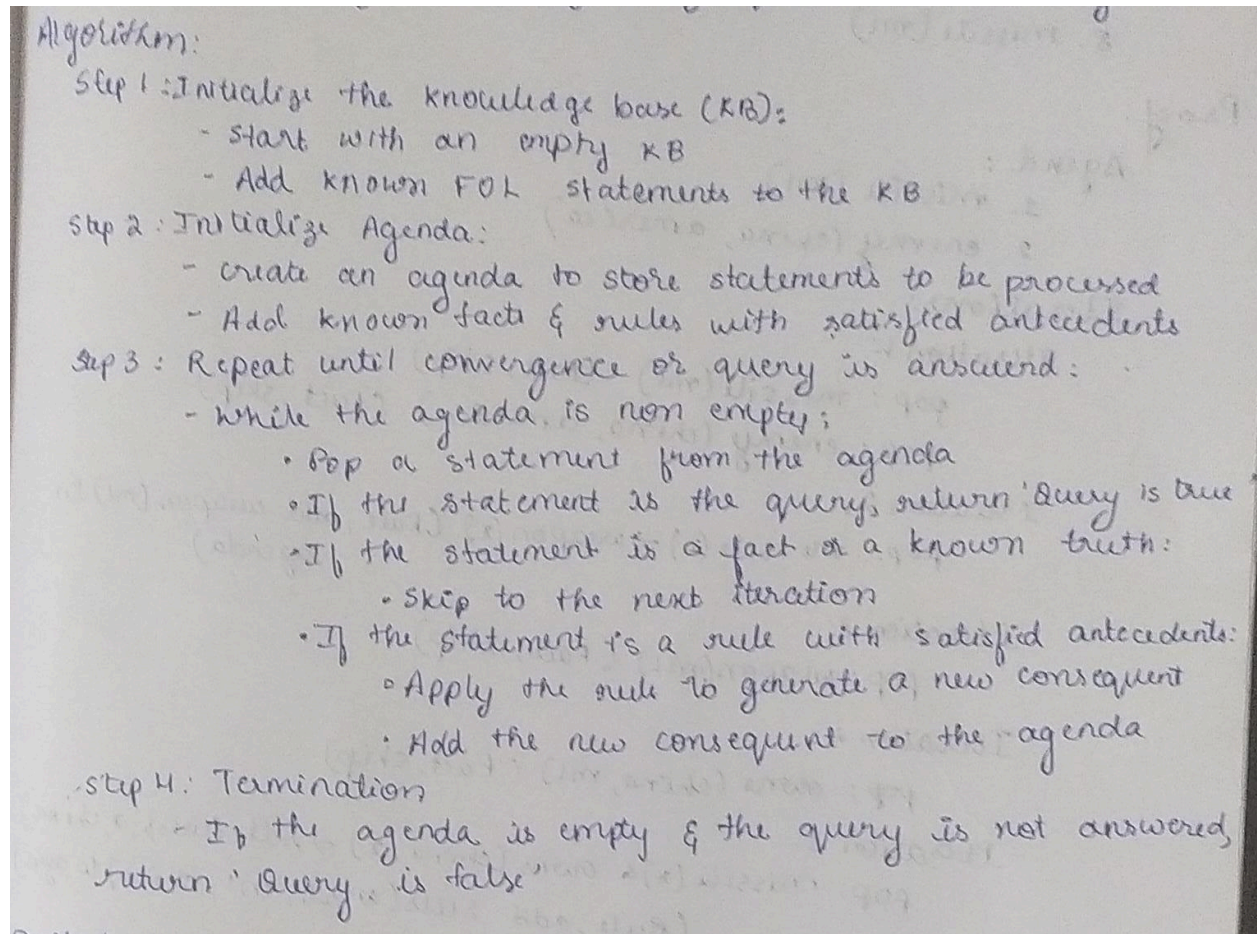 Algorithm:
Step 1 : Initialize the knowledge base (KB):
- Start with an empty KB
- Add known FOL statements to the KB
Step 2 : Initialize Agenda:
- create an agenda to store statements to be processed
- Add known facts & rules with satisfied antecedents
Step 3 : Repeat until convergence or query is answerd :
- While the agenda is non empty;
• Pop a statement from the agenda
• If the statement is the query, return 'Query is true
• If the statement is a fact or a known truth:
• Skip to the next iteration
• If the statement is a rule with satisfied antecedents:
• Apply the rule to generate a new consequent
• Add the new consequent to the agenda
Step 4: Termination
- If the agenda is empty & the query is not answered,
return 'Query is false'